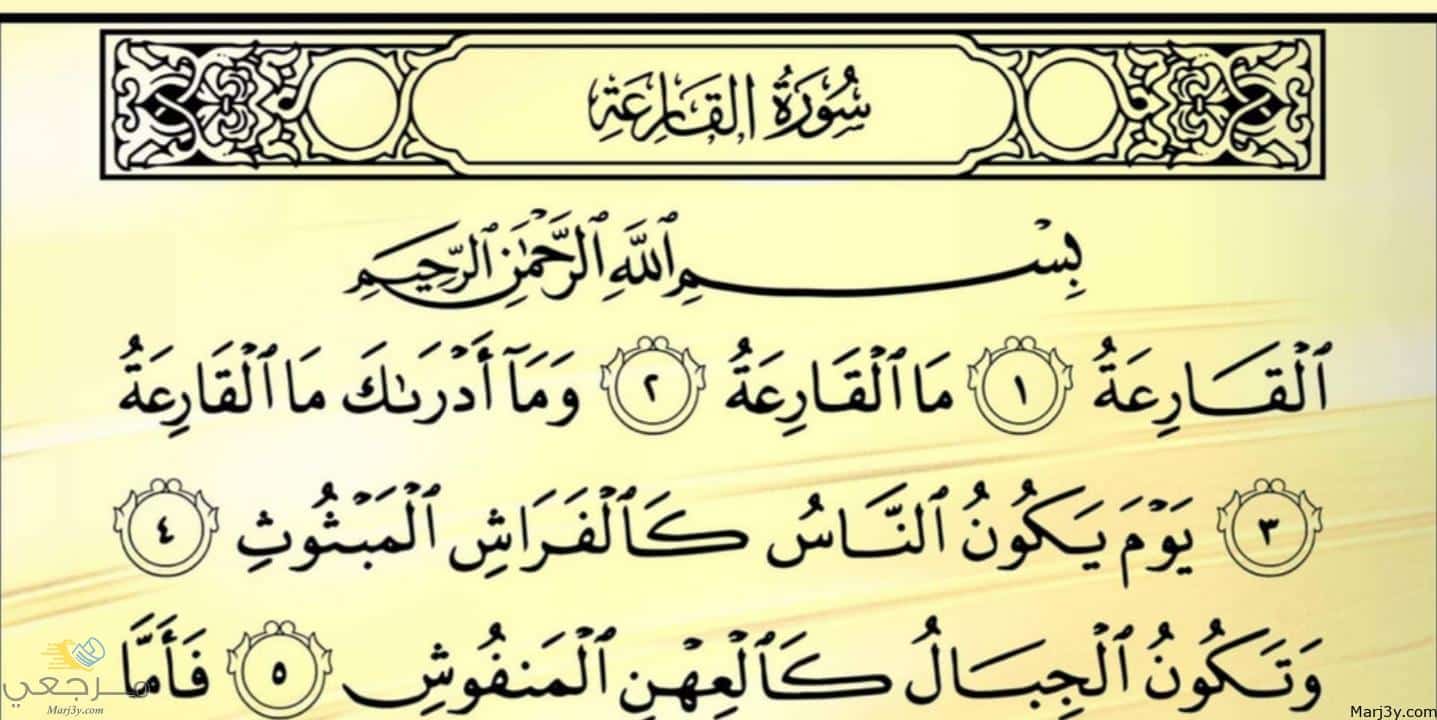 سُورَةُ القَارِعَةِ
بِسْمِ ٱللَّهِ ٱلرَّحْمَٰنِ ٱلرَّحِيمِ
ٱلْقَارِعَةُ ١ مَا ٱلْقَارِعَةُ ٢ وَمَآ أَدْرَىٰكَ مَا ٱلْقَارِعَةُ
٣ يَوْمَ يَكُونُ ٱلنَّاسُ كَٱلْفَرَاشِ ٱلْمَبْثُوثِ ٤
وَتَكُونُ ٱلْجِبَالُ كَٱلْعِهْنِ ٱلْمَنفُوشِ ٥ فَأَمَّا
مرجعي
Marj3y.com
Marj3y.com